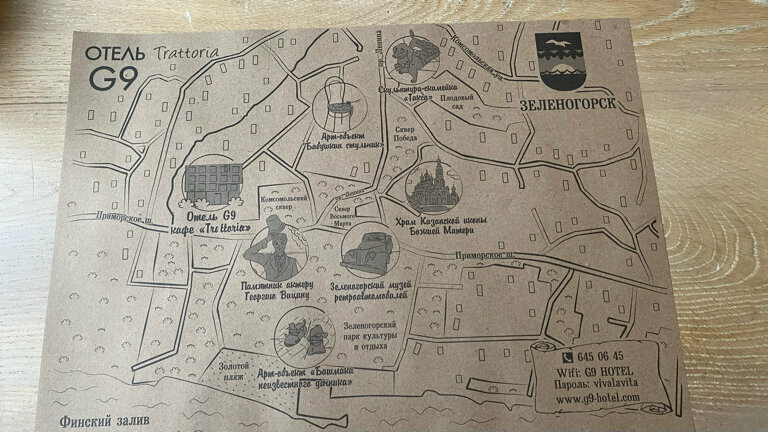 ОТЕЛЬ Trattoria
G9
пр. Ленина
Комсомольская ул.
Скульптура-скамейка
"Такса"
Плодовый
сад
ЗЕЛЕНОГОРСК
Арт-объект
"Бабушкин стульчик"
Сквер
Победа
Отель G9
кафе «Trattoria»
Комсомольский
сквер
пр. Ленина
Сквер
Восьмого
Марта
Храм Казанской иконы
Божией Матери
Приморское ш.
Приморское ш.
Памятник актеру
Георгию Вицину
Зеленогорский музей
ретроавтомобилей
Зеленогорский
парк культуры
и отдыха
Золотой
пляж
Арт-объект «Башмаки
неизвестного дачника»
645 06 45
Wifi: G9 HOTEL
Пароль: vivalavita
www.g9-hotel.com
Финский залив